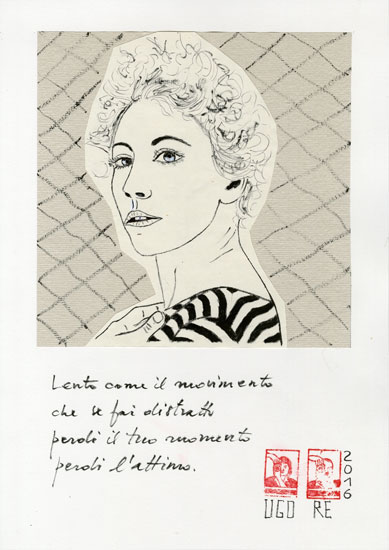 Lento come il movimento
che se fai distratto
perdi il tuo momento
perdi l'attimo.
2016
UGO RE